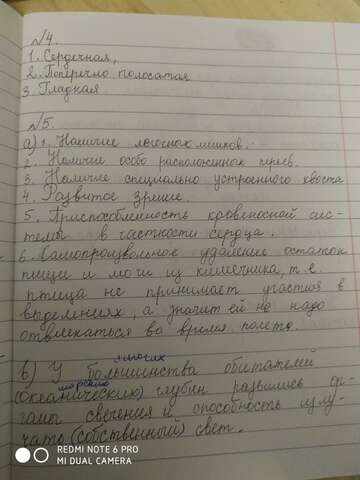 №4.
1. Сердечная,
2. Поперечно полосатая
3. Гладкая
№5.
а) 1. Наличие легочных мешков.
2. Наличие особо расположенных перьев.
3. Наличие специально устроенного хвоста
4. Развитое зрение.
5. Приспособленность кровеносной сис-
темы в частности сердца.
6. Самопроизвольное удаление остатков
пищи и мочи из кишечника, т.е.
птица не принимает участия в
выделениях, а значит ей не надо
отвлекаться во время полета.
многих
в) У большинства обитателей
морских
(океанических) глубин развились ор-
ганы свечения и способность излу-
чать (собственный) свет.
REDMI NOTE 6 PRO
MI DUAL CAMERA